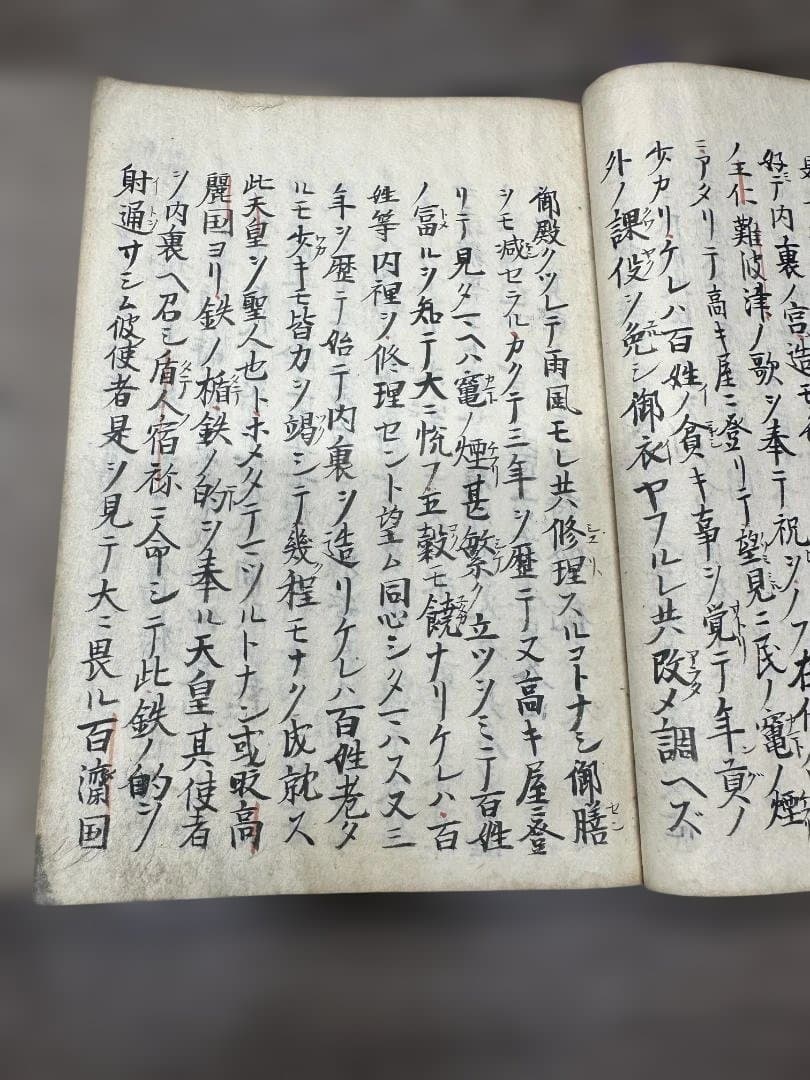 好テ内裏ノ宮造モ
ノ王仁難波津ノ歌ヲ奉テ祝シノフ在位
ニアタリテ高キ屋ニ登リテ望見ニ民ノ竈ノ煙
少カリケレハ百姓ノ貧キ事ヲ覚テ年貢ノ
外ノ課役ヲ免シ御衣ヤフルレ共改メ調ヘズ
御殿クツレテ雨風モレ共修理スルコトナシ御膳
シモ減セラルカクテ三年ヲ歴テ又高キ屋ニ登
リテ見タマヘハ竈ノ煙甚繁ク立ツヲミテ百姓
ノ冨ルヲ知テ大ニ悦フ五穀モ饒ナリケレハ百
姓等内裡ヲ修理セント望ム同心シタマハス又三
年ヲ歴テ始テ内裏ヲ造リケレハ百姓老タ
ルモ少キモ皆力ヲ竭シテ幾程モナク成就ス
此天皇ヲ聖人也トホメタテマツルトナン或時高
麗国ヨリ鉄ノ楯鉄ノ的ヲ奉ル天皇其使者
ヲ内裏ヘ召シ盾人宿祢ニ命シテ此鉄ノ的ヲ
射通サシム彼使者是ヲ見テ大ニ畏ル百濟国